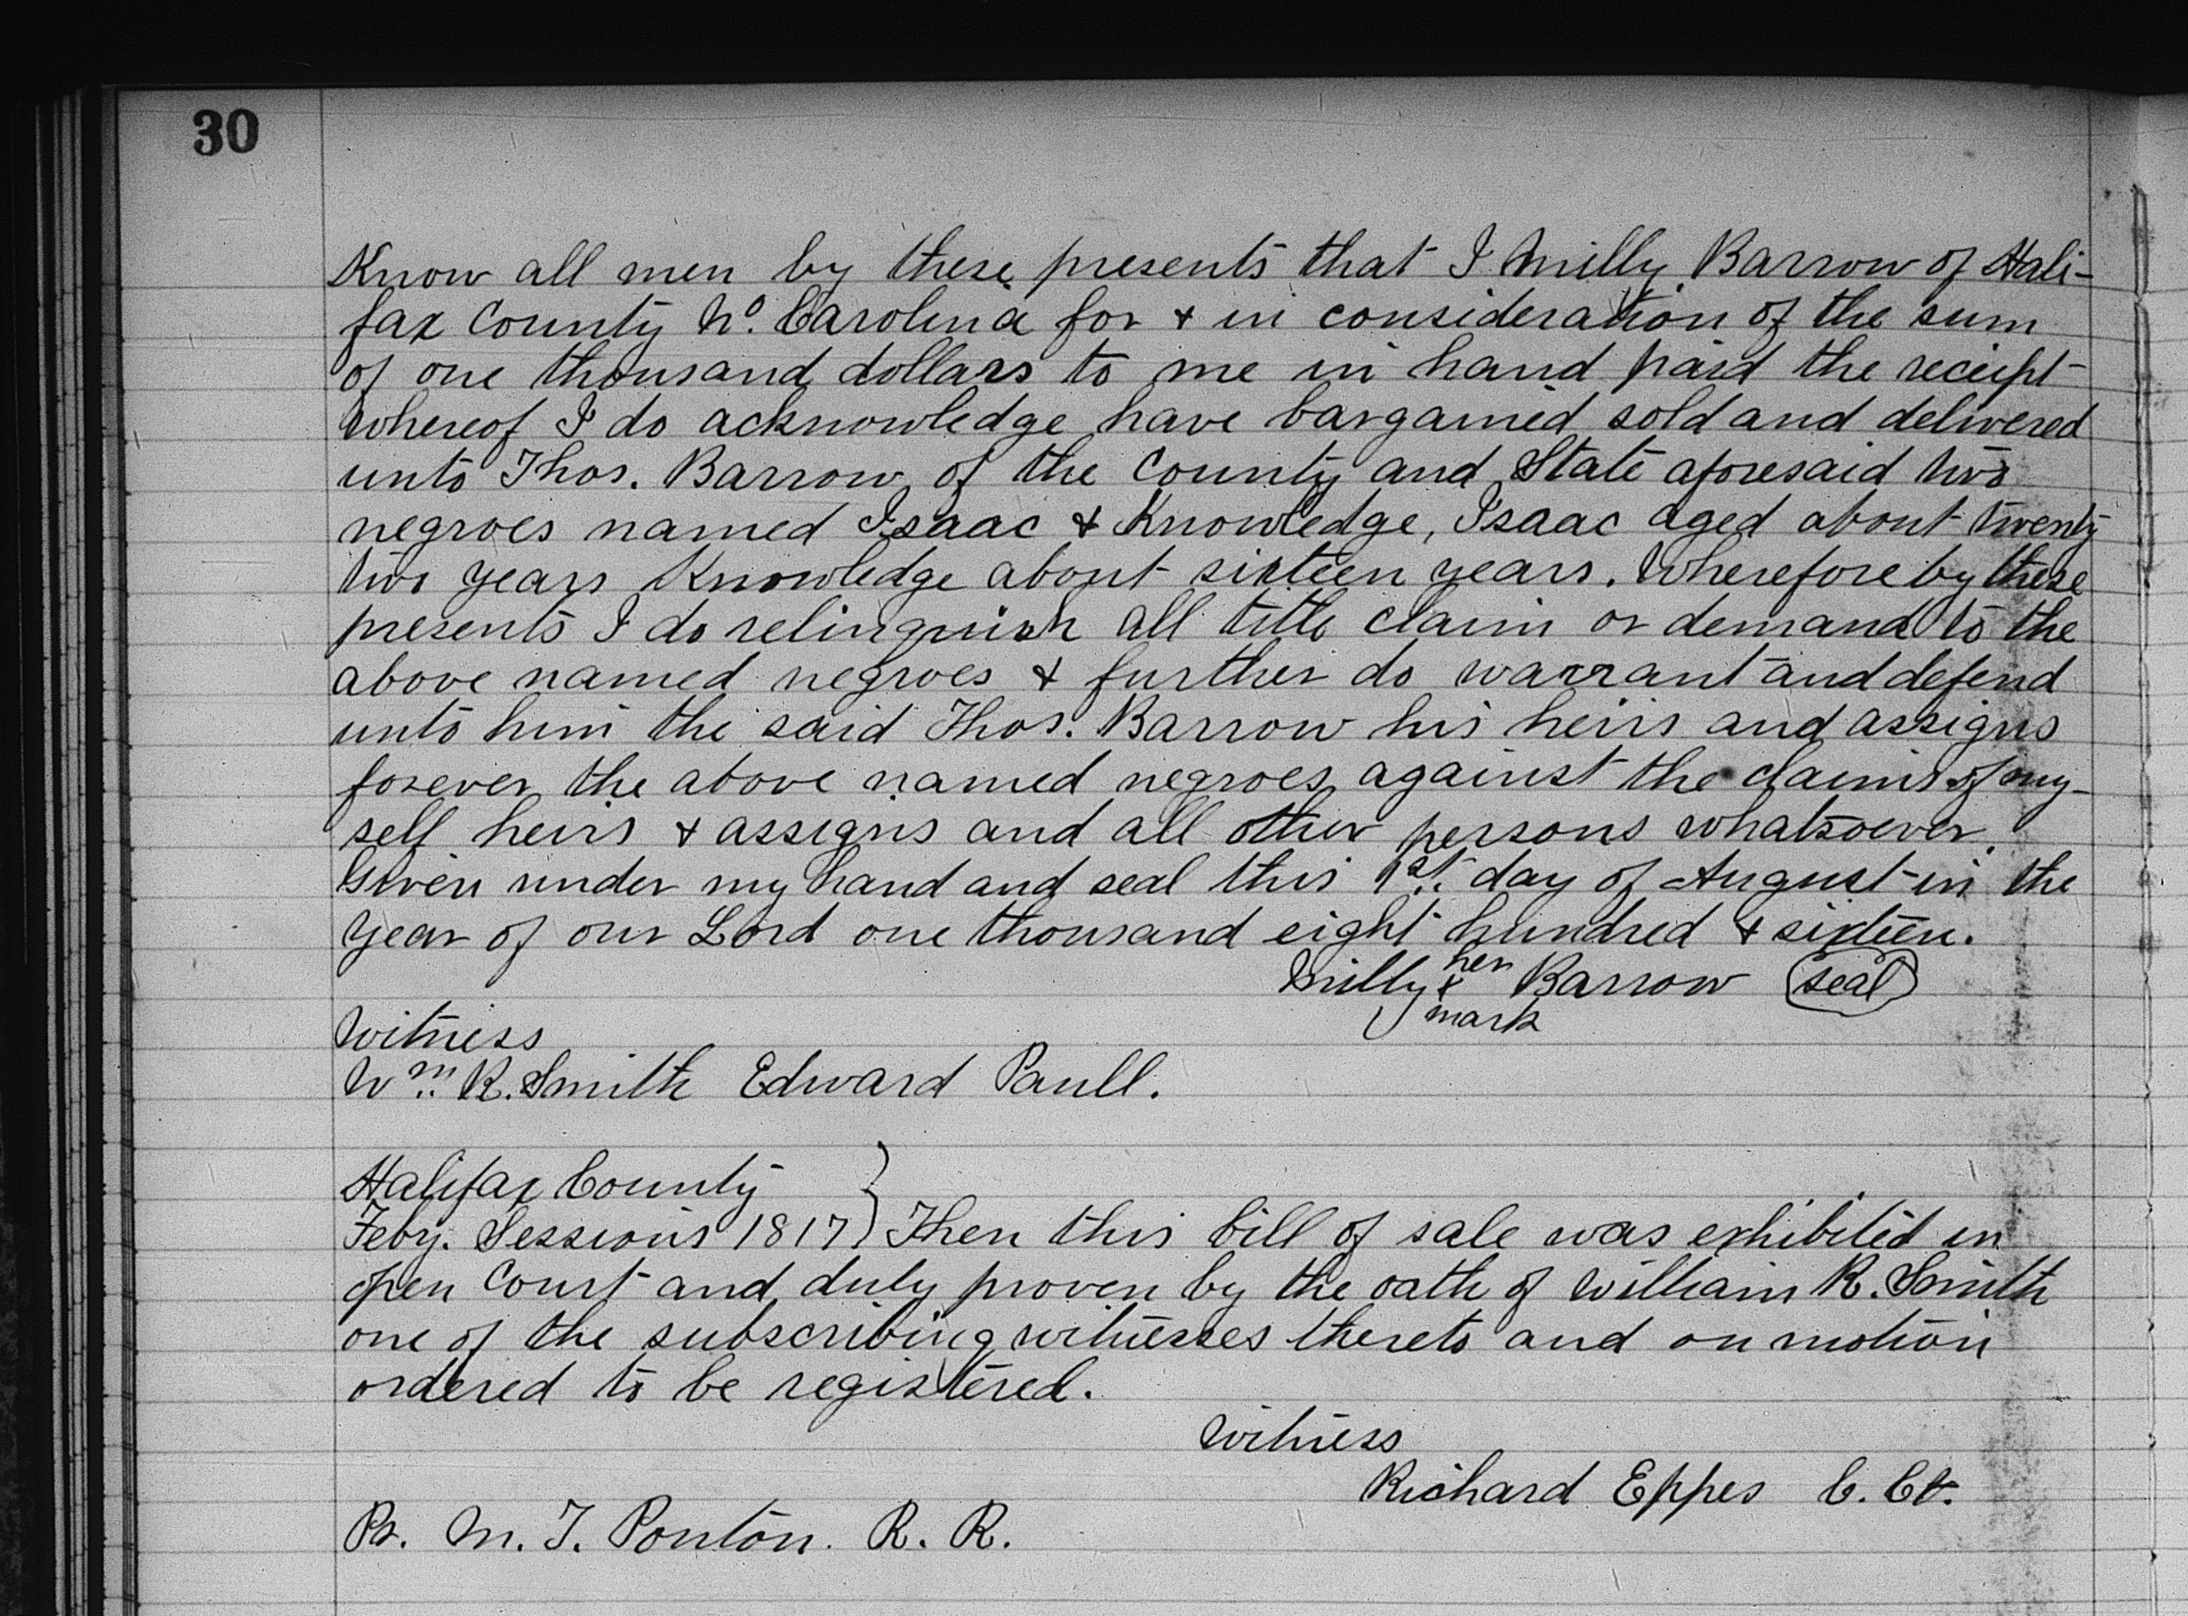 30
Know all men by these presents that I Milly Barrow of Hali-
fax County No. Carolina for & in consideration of the sum
of one thousand dollars to me in hand paid the receipt
whereof I do acknowledge have bargained sold and delivered
unto Thos. Barrow of the County and State aforesaid two
negroes named Isaac & Knowledge, Isaac aged about twenty
two years Knowledge about sixteen years. Wherefore by these
presents I do relinquish all title claim or demand to the
above named negroes & further do warrant and defend
unto him the said Thos. Barrow his heirs and assigns
forever the above named negroes against the claims of my-
self heirs & assigns and all other persons whatsoever.
Given under my hand and seal this 1st. day of August in the
year of our Lord one thousand eight hundred & sixteen.
Milly her x mark Barrow seal
Witness
Wm. R. Smith Edward Paull.
Halifax County }
Feby. Sessions 1817 } Then this bill of sale was exhibited in
open Court and duly proven by the oath of William R. Smith
one of the subscribing witnesses thereto and on motion
ordered to be registered.
Witness
Richard Eppes C. Ct.
Pr. M. T. Ponton. R. R.